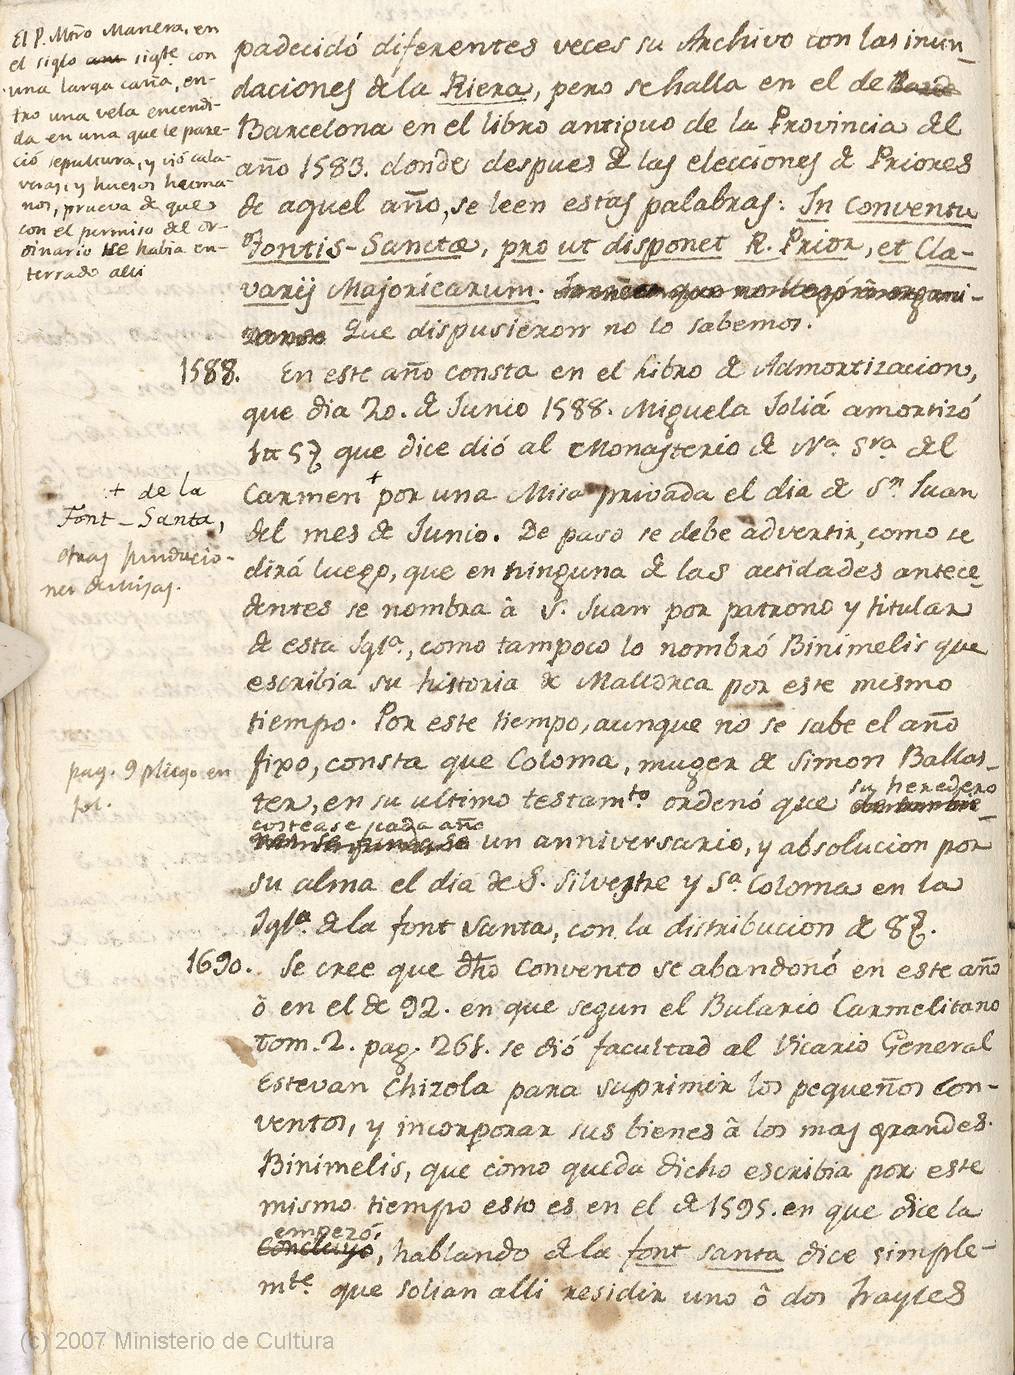 El P. Mtro Manera, en
el siglo sigte con
una larga caña, en-
tro una vela encendi-
da en una que le pare-
ció sepultura, y vió cala-
veras, y huesos huma-
nos, prueva de que
con el permiso del or-
dinario se habia en-
terrado alli
padecidó diferentes veces su Archivo con las inun-
daciones de la Riera, pero se halla en el de
Barcelona en el libro antiguo de la Provincia del
año 1583. donde despues de las elecciones de Priores
de aquel año, se leen estas palabras: In Conventu
Fontis-Sanctæ, pro ut disponet R. Prior, et Cla-
varij Majoricarum.
Que dispusieron no lo sabemos.
1588. En este año consta en el Libro de Admortizacion,
que dia 20. de Junio 1588. Miguela Joliá amortizó
que dice dió al Monasterio de Na. Sra. del
Carmen + por una Misa privada el dia de Sn. Juan
+ de la
Font-Santa,
otras fundacio-
nes de misas.
del mes de Junio. De paso se debe advertir, como se
dirá luego, que en ninguna de las actidades antece-
dentes se nombra â S. Juan por patrono y titular
de esta Igla., como tampoco lo nombró Binimelis que
escribia su historia de Mallorca por este mismo
tiempo. Por este tiempo, aunque no se sabe el año
fixo, consta que Coloma, muger de Simon Ballas-
pag. 9 pliego en
fol.
ter, en su ultimo testamto. ordenó que su heredero
costease cada año un anniversario, y absolucion por
su alma el dia de S. Silvestre y Sa. Coloma en la
Igla. de la font Santa, con la distribucion de 8
1690. Se cree que dho Convento se abandonó en este año
ô en el de 92. en que segun el Bulario Carmelitano
Tom. 2. pag. 261. se dió facultad al Vicario General
Estevan Chizola para suprimir los pequeños Con-
ventos, y incorporar sus bienes â los mas grandes.
Binimelis, que como queda dicho escribia por este
mismo tiempo esto es en el de 1595. en que dice la
empezó, hablando de la font santa dice simple-
mte. que solian alli residir uno ô dos frayles
(c) 2007 Ministerio de Cultura